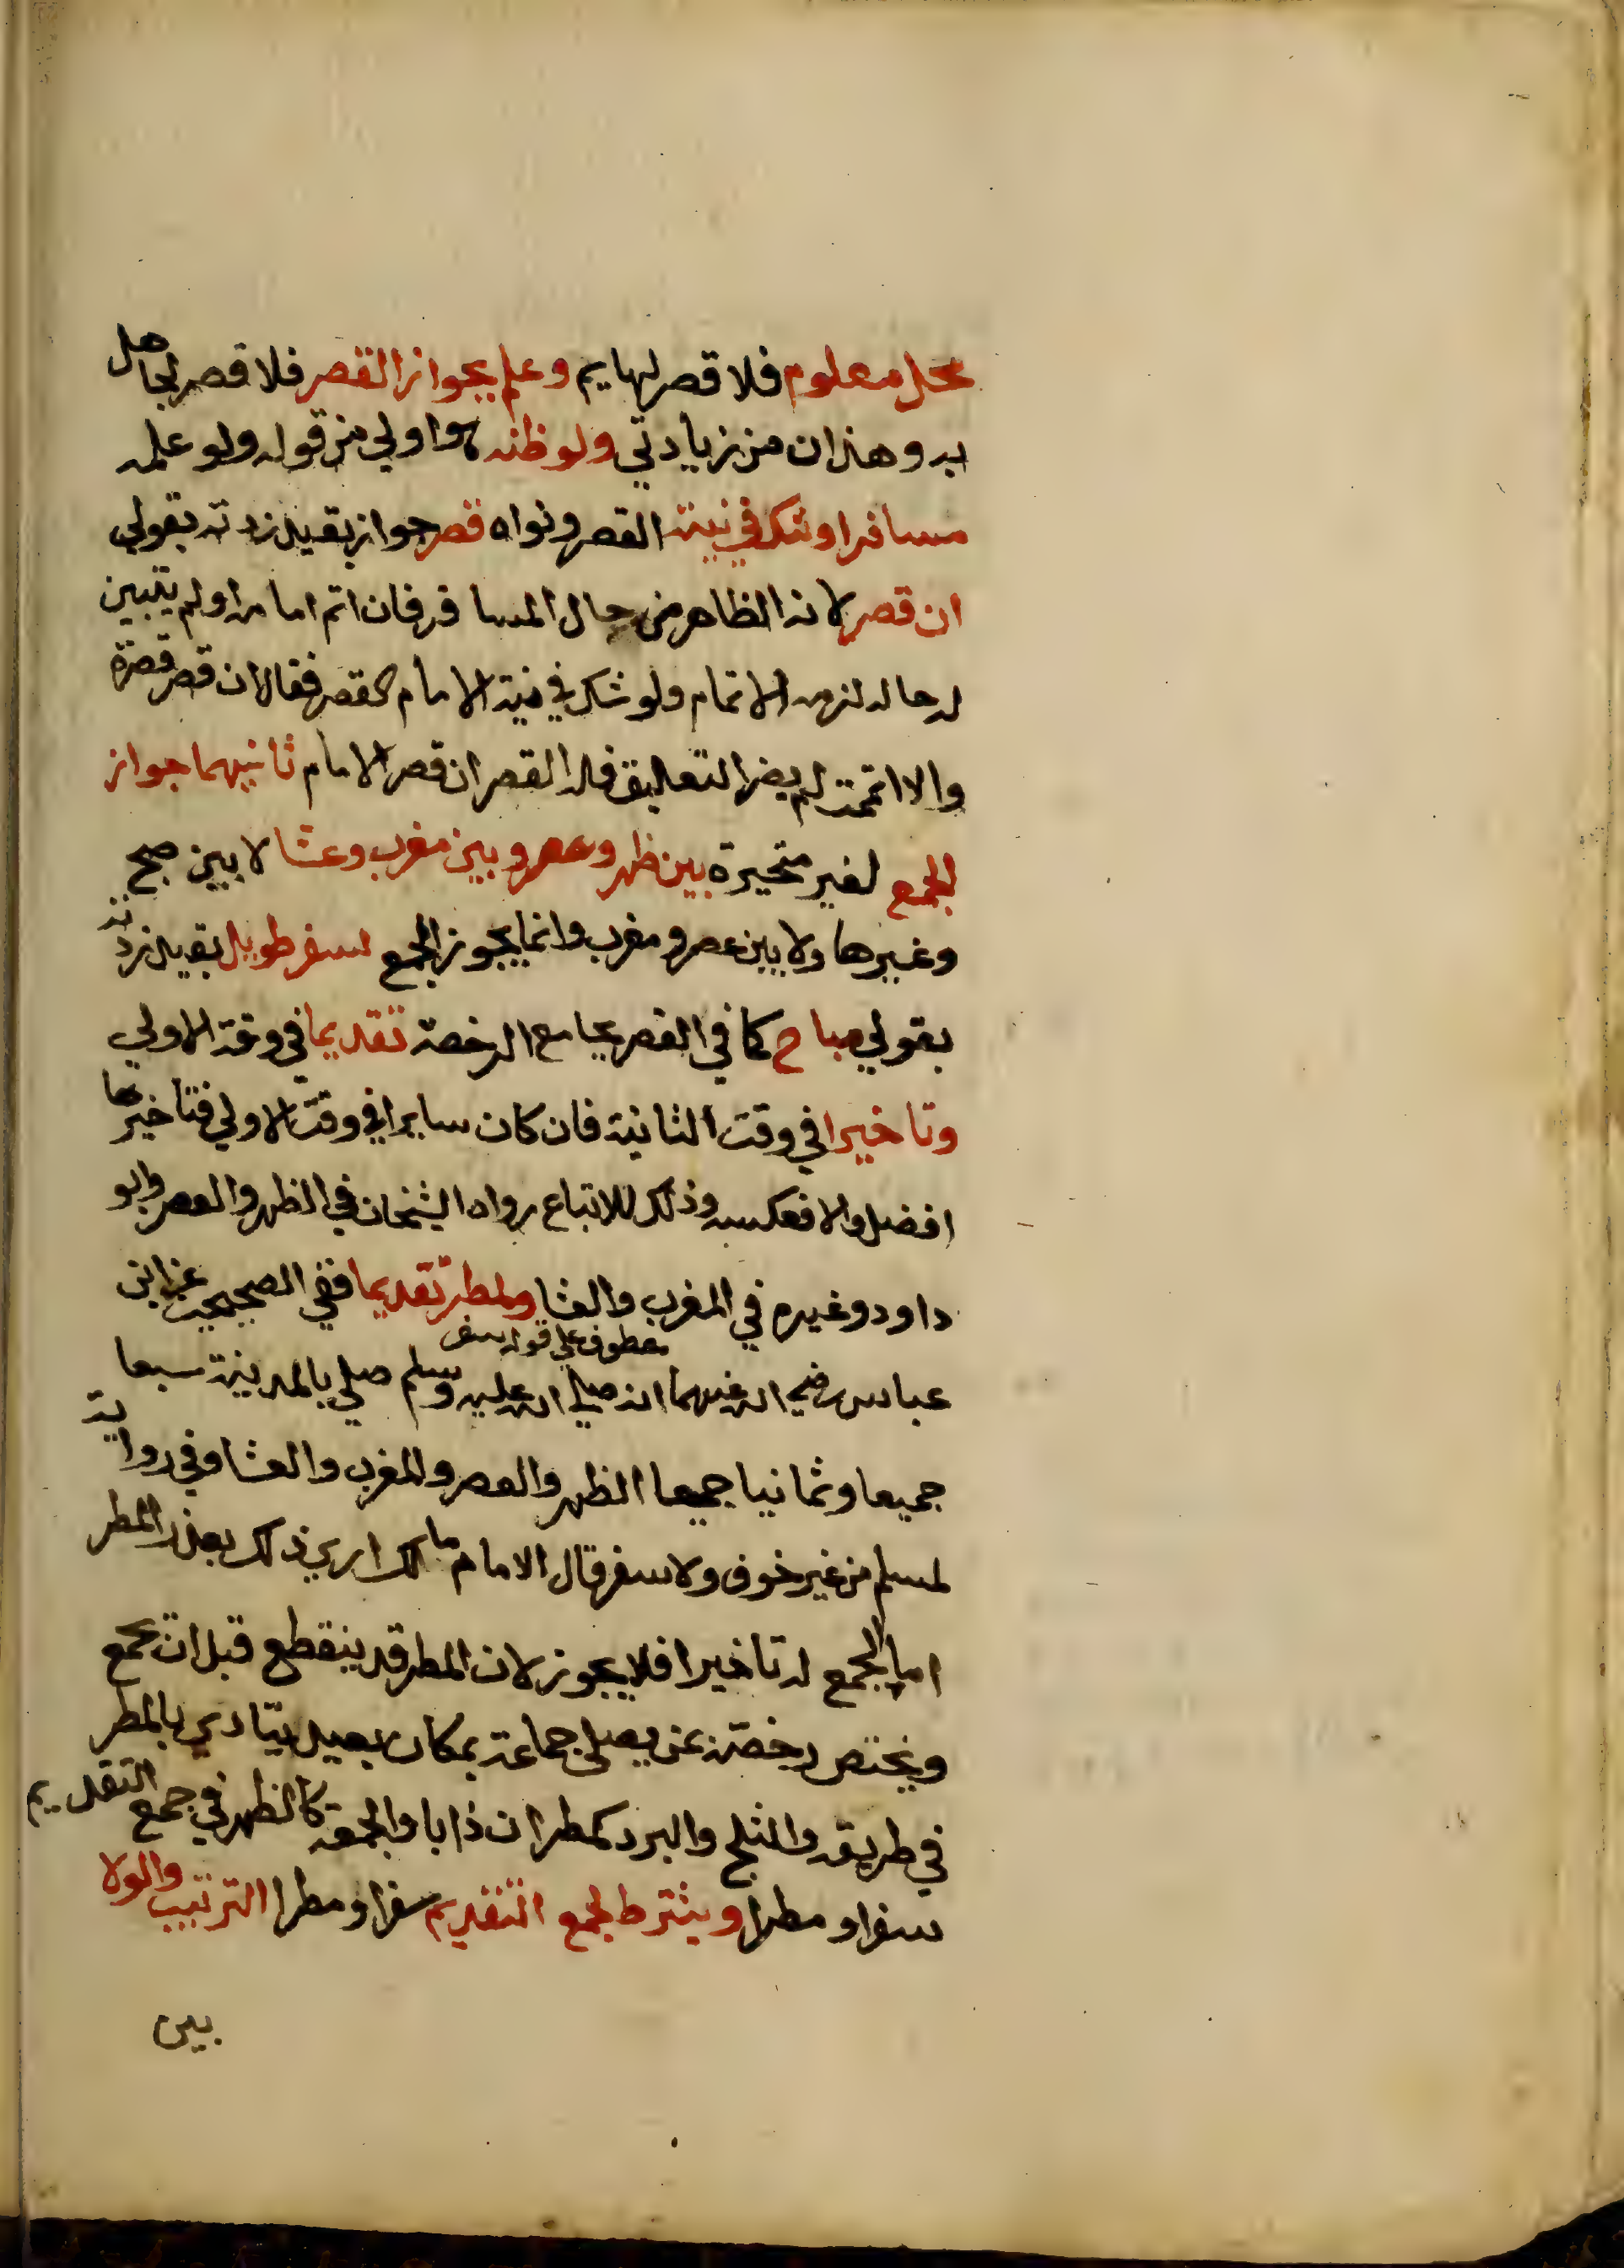 محل معلوم فلا قصر لهايم وعلم بجواز القصر فلا قصر لجاهل
به وهذان من زيادتي ولو ظنه هو اولي من قوله ولو علمه
مسافرا وشك في نية القصر ونواه قصر جواز بقيد زدته بقولي
ان قصر لانه الظاهر من حال المسافر فان اتم امامه او لم يتبين
له حاله لزمه الاتمام ولو شك في نية الامام القصر فقال ان قصر قصرة
والا اتممت لم يضر التعليق فله القصر ان قصر الامام ثانيهما جواز
الجمع لغير متحيرة بين ظهر وعصر وبين مغرب وعشا لا بين صبح
وغيرها ولا بين عصر ومغرب وانما يجوز الجمع لسفر طويل بقيد زدته
بقولي مباح كما في القصر بجامع الرخصة تقديما في وقت الاولي
وتاخيرا في وقت الثانية فان كان سايرا في وقت الاولي فتاخيرها
افضل والا فعكسه وذلك للاتباع رواه الشيخان في الظهر والعصر وابو
داود وغيره في المغرب والعشا ولمطر تقديما ففي الصحيحين عن ابن
معطوف علي قوله لسفر
عباس رضي الله عنهما انه صلي الله عليه وسلم صلي بالمدينة سبعا
جميعا وثمانيا جميعا الظهر والعصر والمغرب والعشا وفي رواية
لمسلم من غير خوف ولا سفر قال الامام مالك اري ذلك بعذر المطر
اما الجمع له تاخيرا فلا يجوز لان المطر قد ينقطع قبل ان يجمع
ويختص رخصته بمن يصلي جماعة بمكان بعيد يتاذي بالمطر
في طريقه والثلج والبرد كمطر ان ذابا والجمعة كالظهر في جمع التقديم
سفرا ومطرا ويشترط لجمع التقديم سفرا ومطرا الترتيب والولا
بين